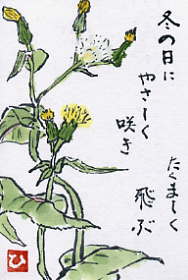 冬の日に
やさしく
咲き
たくましく
飛ぶ
ひ